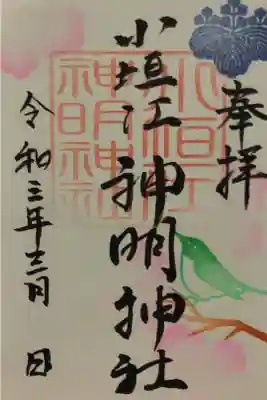 奉拝
小垣江神明神社
小垣江神明神社
令和三年十二月 日